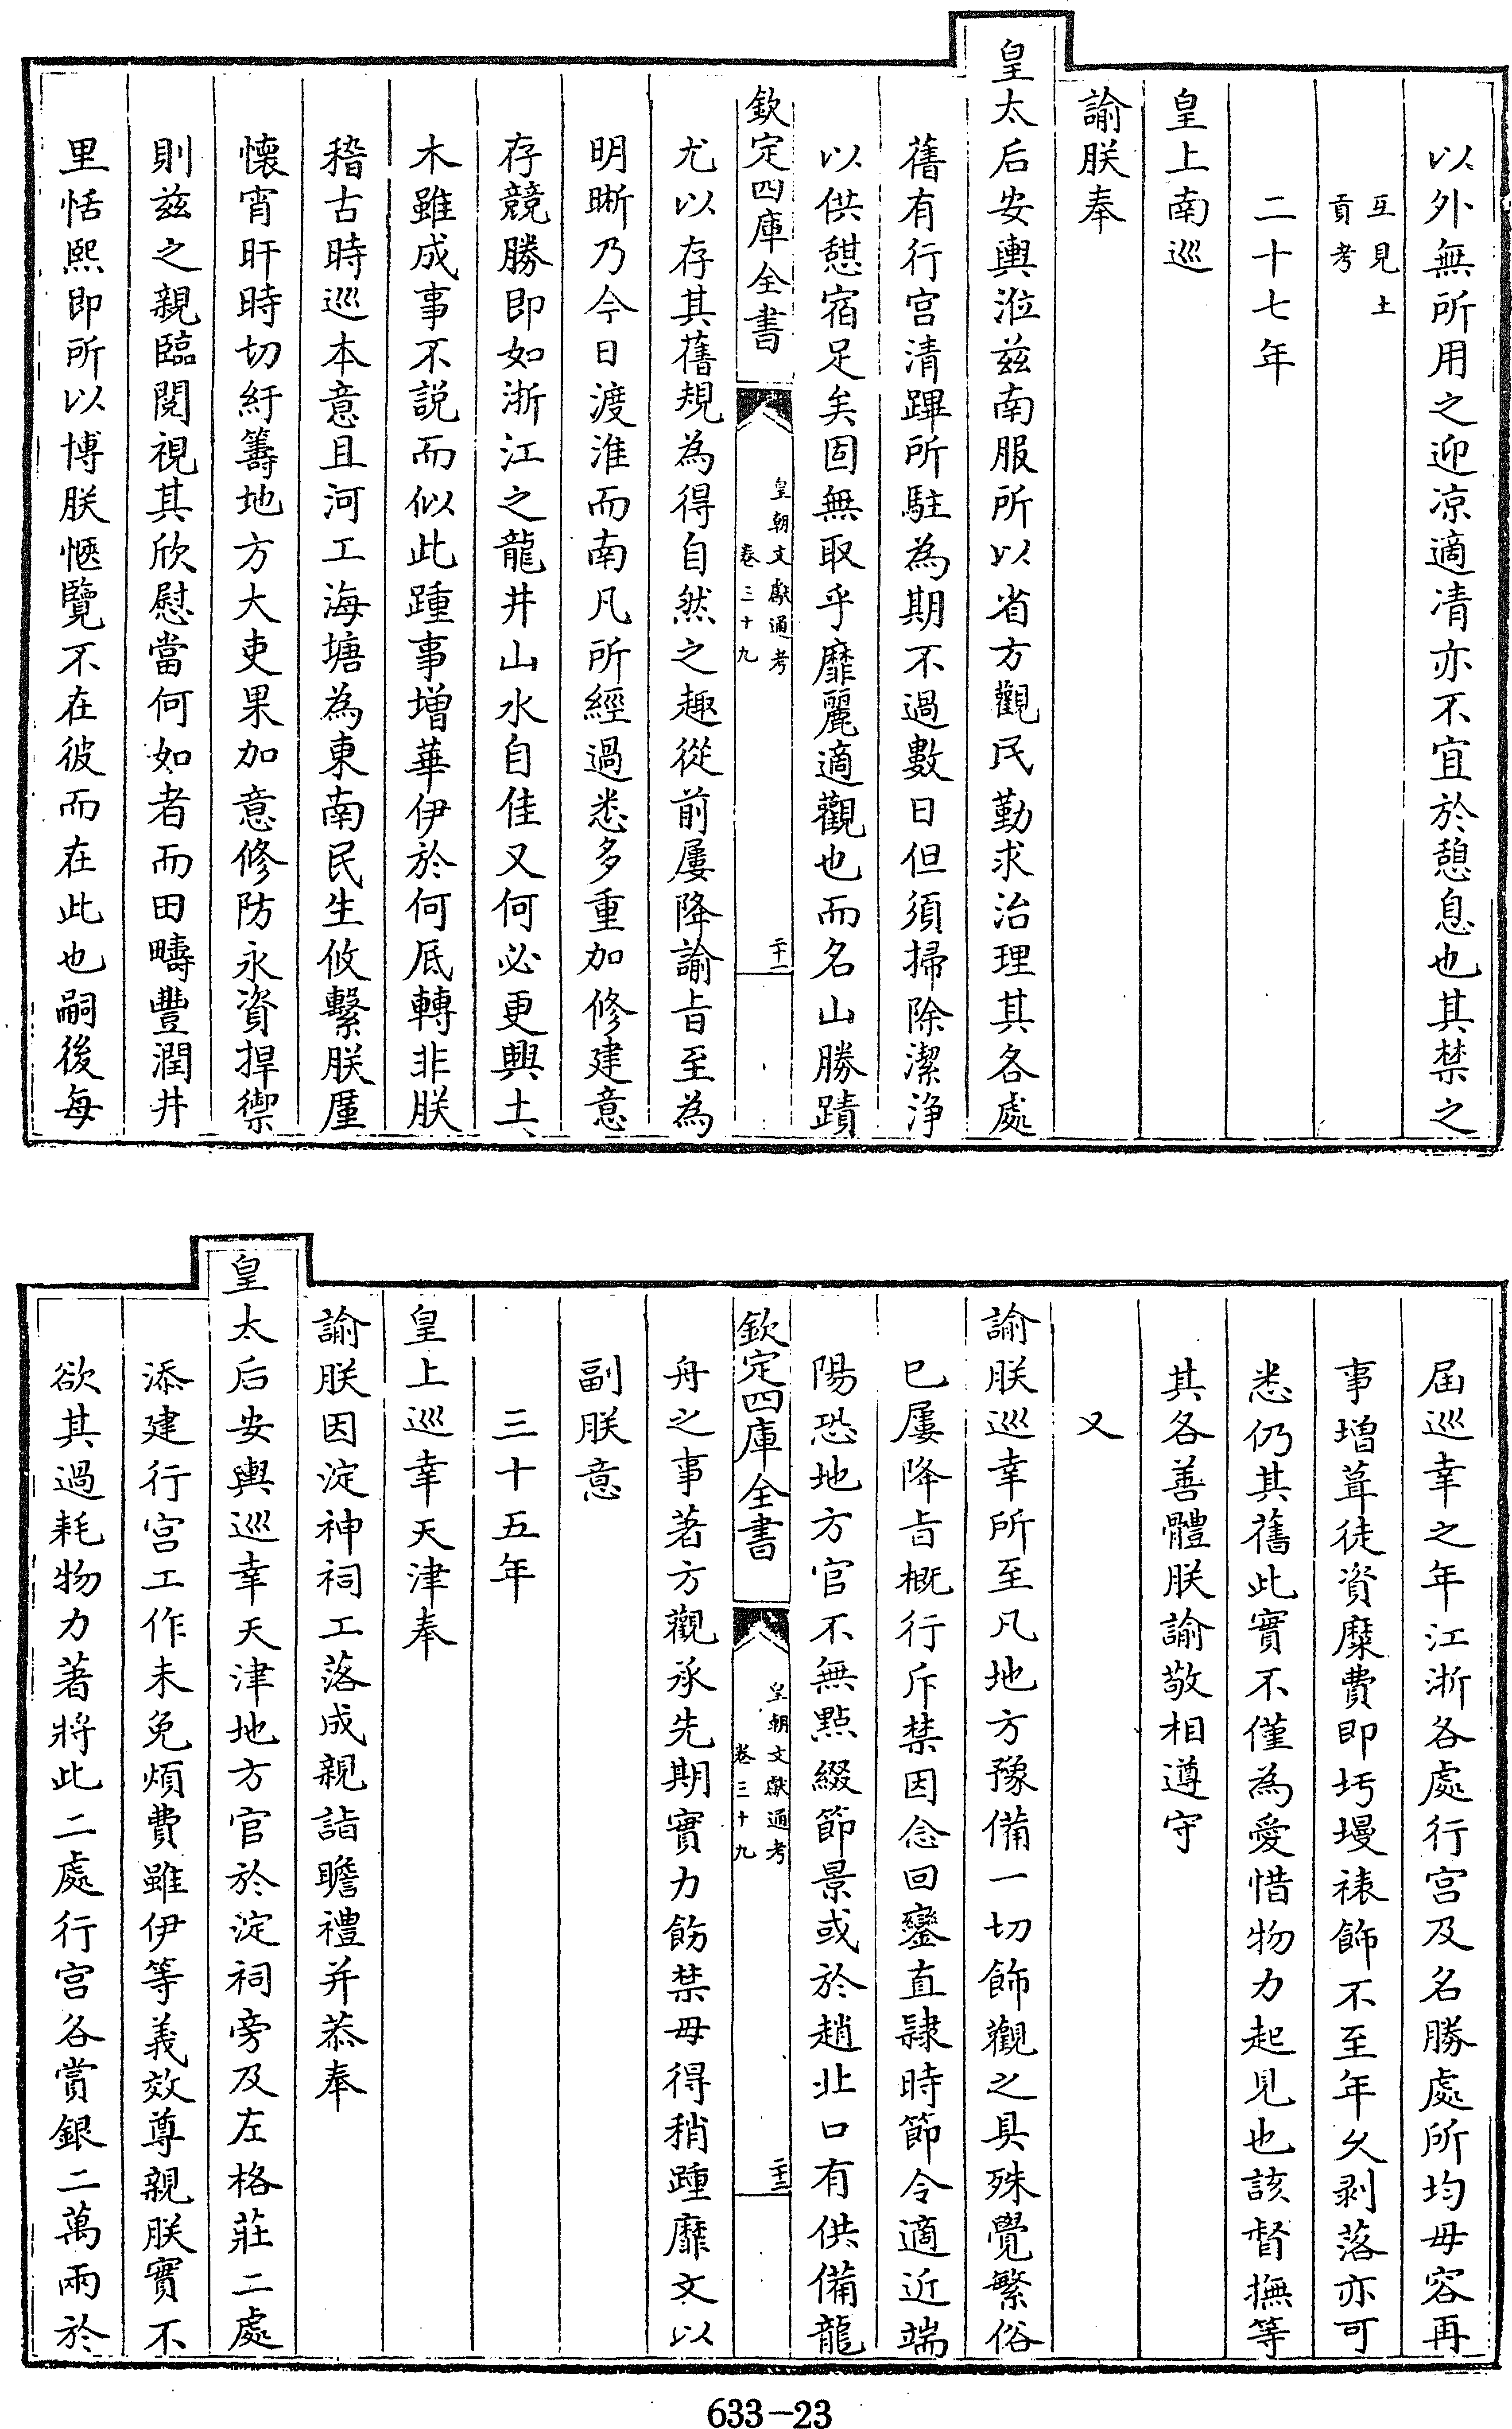 以外無所用之迎涼適凊亦不宜於憩息也其禁之
互見土
貢考
二十七年
皇上南巡
諭朕奉
皇太后安輿涖兹南服所以省方觀民勤求治理其各處
舊有行宫清蹕所駐為期不過數日但須掃除潔浄
以供憇宿足矣固無取乎靡麗適觀也而名山勝蹟
欽定四庫全書
皇朝文獻通考
卷三十九
二十二
尤以存其舊規為得自然之趣從前屢降諭㫖至為
明晰乃今日渡淮而南凡所經過悉多重加修建意
存競勝即如浙江之龍井山水自佳又何必更興土
木雖成事不説而似此踵事増華伊於何底轉非朕
稽古時巡本意且河工海塘為東南民生攸繫朕厪
懐宵旰時切紆籌地方大吏果加意修防永資捍禦
則兹之親臨閱視其欣慰當何如者而田疇豐潤井
里恬熙即所以博朕愜覽不在彼而在此也嗣後每
屆巡幸之年江浙各處行宫及名勝處所均毋容再
事増葺徒資糜費即圬墁裱飾不至年久剥落亦可
悉仍其舊此實不僅為愛惜物力起見也該督撫等
其各善體朕諭敬相遵守
又
諭朕巡幸所至凡地方豫備一切飾觀之具殊覺繁俗
已屢降㫖概行斥禁因念回鑾直隷時節令適近端
陽恐地方官不無點綴節景或於趙北口有供備龍
欽定四庫全書
皇朝文獻通考
卷三十九
二十三
舟之事著方觀承先期實力飭禁毋得稍踵靡文以
副朕意
三十五年
皇上巡幸天津奉
諭朕因淀神祠工落成親詣瞻禮并恭奉
皇太后安輿巡幸天津地方官於淀祠旁及左格莊二處
添建行宫工作未免煩費雖伊等義效尊親朕實不
欲其過耗物力著將此二處行宫各賞銀二萬兩於
633-23